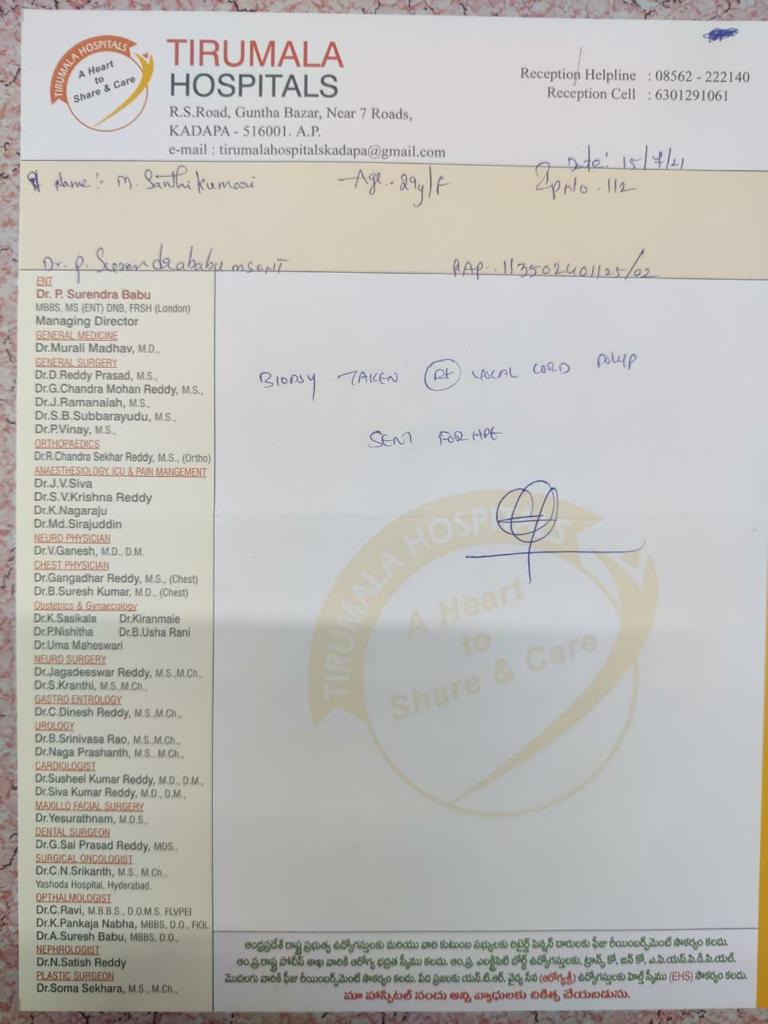 TIRUMALA HOSPITALS
A Heart
to
Share & Care
TIRUMALA
HOSPITALS
R.S.Road, Guntha Bazar, Near 7 Roads,
KADAPA - 516001. A.P.
e-mail : tirumalahospitalskadapa@gmail.com
Reception Helpline : 08562 - 222140
Reception Cell : 6301291061
Date: 15/7/21
Name:- M. Santhi kumari Age- 29y/F Ip No. 112
Dr. P. Surendrababu MSENT RAP. 113502401125/02
ENT
Dr. P. Surendra Babu
MBBS, MS (ENT) DNB, FRSH (London)
Managing Director
GENERAL MEDICINE
Dr.Murali Madhav, M.D.,
GENERAL SURGERY
Dr.D.Reddy Prasad, M.S.,
Dr.G.Chandra Mohan Reddy, M.S.,
Dr.J.Ramanaiah, M.S.,
Dr.S.B.Subbarayudu, M.S.,
Dr.P.Vinay, M.S.,
ORTHOPAEDICS
Dr.R.Chandra Sekhar Reddy, M.S., (Ortho)
ANAESTHESIOLOGY, ICU & PAIN MANGEMENT
Dr.J.V.Siva
Dr.S.V.Krishna Reddy
Dr.K.Nagaraju
Dr.Md.Sirajuddin
NEURO PHYSICIAN
Dr.V.Ganesh, M.D., D.M.
CHEST PHYSICIAN
Dr.Gangadhar Reddy, M.S., (Chest)
Dr.B.Suresh Kumar, M.D., (Chest)
Obstetrics & Gynaecology
Dr.K.Sasikala Dr.Kiranmaie
Dr.P.Nishitha Dr.B.Usha Rani
Dr.Uma Maheswari
NEURO SURGERY
Dr.Jagadeeswar Reddy, M.S.,M.Ch.,
Dr.S.Kranthi, M.S.,M.Ch.,
GASTRO ENTROLOGY
Dr.C.Dinesh Reddy, M.S.,M.Ch.,
UROLOGY
Dr.B.Srinivasa Rao, M.S.,M.Ch.,
Dr.Naga Prashanth, M.S., M.Ch.,
CARDIOLOGIST
Dr.Susheel Kumar Reddy, M.D., D.M.,
Dr.Siva Kumar Reddy, M.D., D.M.,
MAXILLO FACIAL SURGERY
Dr.Yesurathnam, M.D.S.,
DENTAL SURGEON
Dr.G.Sai Prasad Reddy, MDS.,
SURGICAL ONCOLOGIST
Dr.C.N.Srikanth, M.S., M.Ch.,
Yashoda Hospital, Hyderabad.
OPTHALMOLOGIST
Dr.C.Ravi, M.B.B.S., D.O.M.S. FLVPEI
Dr.K.Pankaja Nabha, MBBS, D.O., FIOL
Dr.A.Suresh Babu, MBBS, D.O.,
NEPHROLOGIST
Dr.N.Satish Reddy
PLASTIC SURGEON
Dr.Soma Sekhara, M.S., M.Ch.,
BIOPSY TAKEN Rt VOCAL CORD POLYP
SENT FOR HPE
TIRUMALA HOSPITALS
A Heart
to
Share & Care
ఆంధ్రప్రదేశ్ రాష్ట్ర ప్రభుత్వ ఉద్యోగస్తులకు మరియు వారి కుటుంబ సభ్యులకు రిటైర్డ్ పెన్షన్ దారులకు ఫీజు రీయింబర్స్‌మెంట్ సౌకర్యం కలదు.
ఆం.ప్ర.రాష్ట్ర పోలీస్ శాఖ వారికి ఆరోగ్య భద్రత స్కీము కలదు. ఆం.ప్ర. ఎలక్ట్రిసిటి బోర్డ్ ఉద్యోగస్తులకు, ట్రాన్స్ కో, జన్ కో, ఎ.పి.యస్.పి.డి.సి.యల్.
మొదలగు వారికి ఫీజు రీయింబర్స్‌మెంట్ సౌకర్యం కలదు. పేద ప్రజలకు యన్.టి.ఆర్. వైద్య సేవ (ఆరోగ్యశ్రీ) ఉద్యోగస్తులకు హెల్త్ స్కీము (EHS) సౌకర్యం కలదు.
మా హాస్పిటల్ నందు అన్ని వ్యాధులకు చికిత్స చేయబడును.